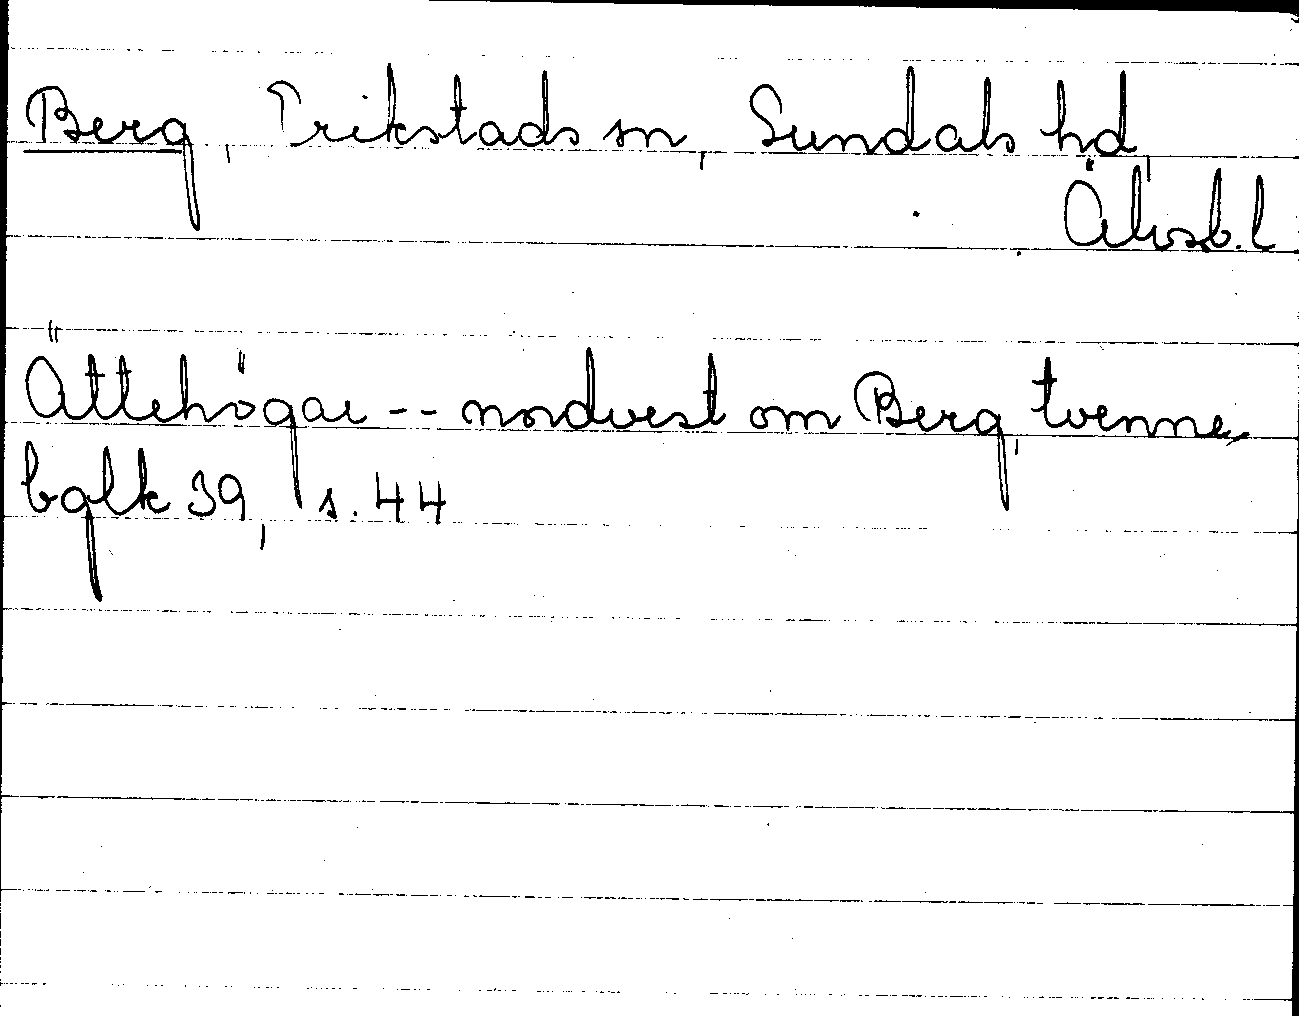 Berg, Frikstads sn, Sundals hd,
Älvsb. l
Ättehögar -- nordvest om Berg, tvenne,
bglk 39, s. 44